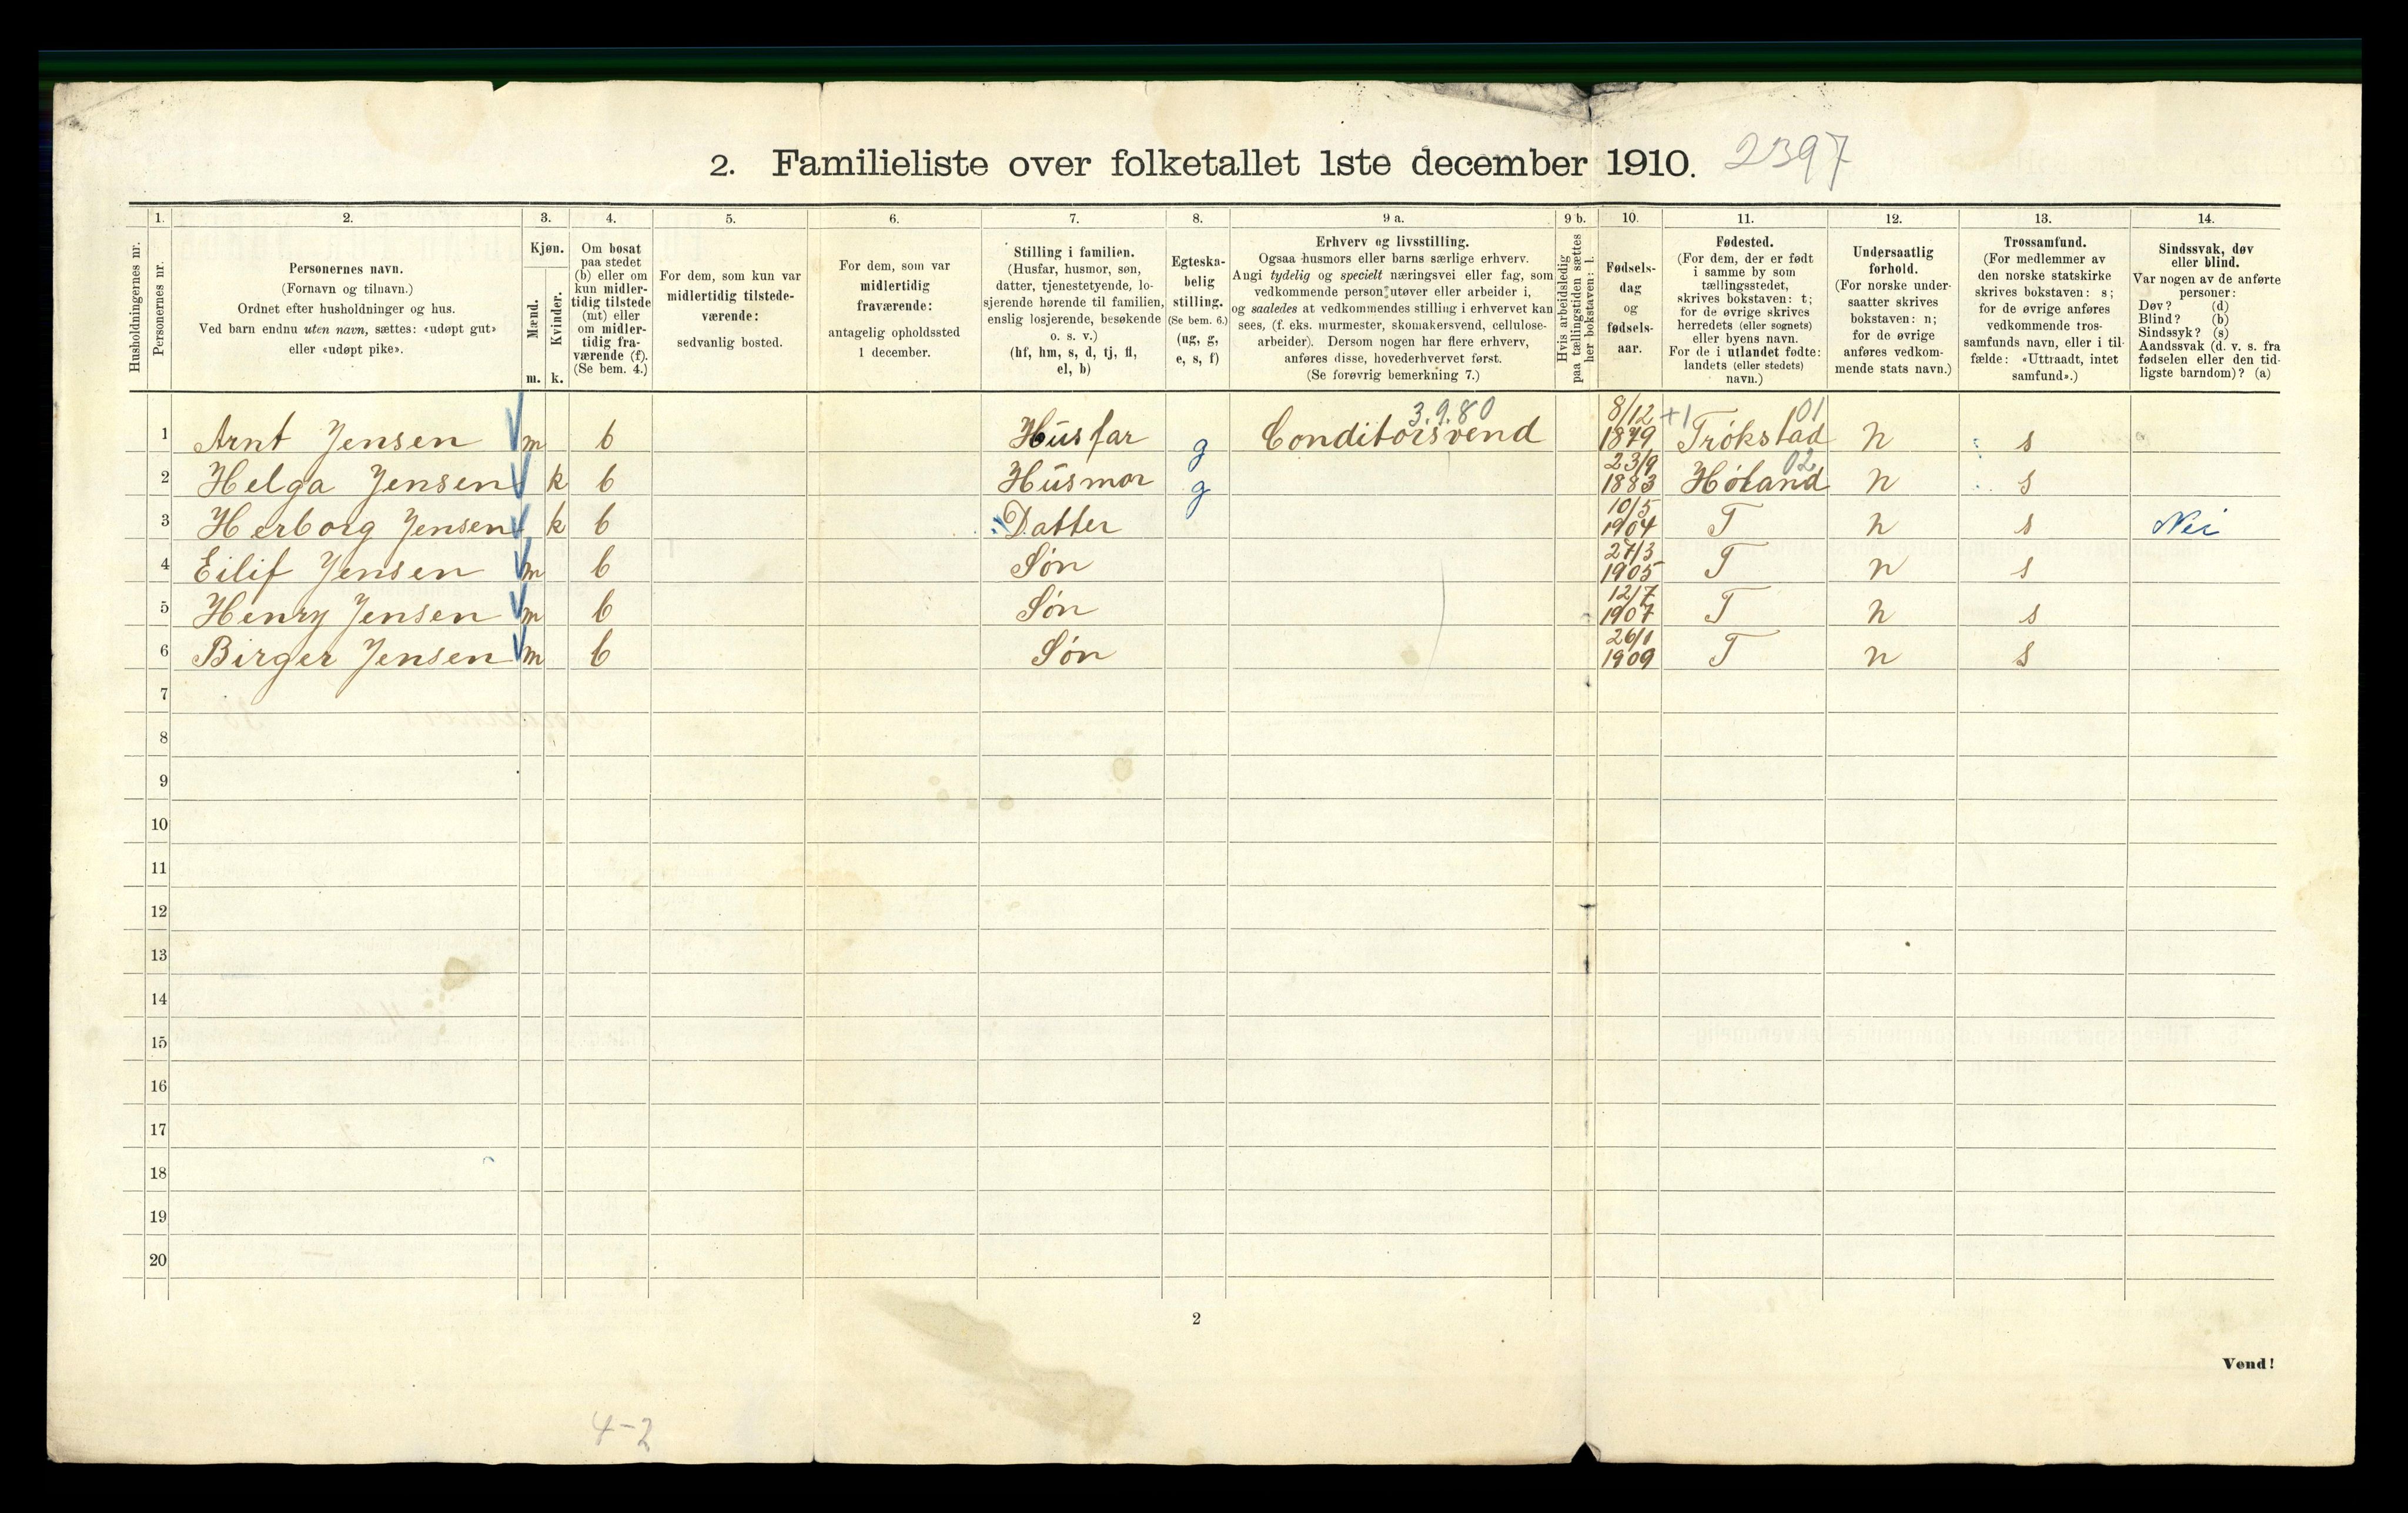 2. Familieliste over folketallet 1ste december 1910. 2397
1. 2. 3. 4. 5. 6. 7. 8. 9 a. 9 b. 10. 11. 12. 13. 14.
Husholdningernes nr.
Personernes nr.
Personernes navn.
(Fornavn og tilnavn.)
Ordnet efter husholdninger og hus.
Ved barn endnu uten navn, sættes: «udøpt gut»
eller «udøpt pike».
Kjøn.
Mænd.
Kvinder.
m. k.
Om bosat
paa stedet
(b) eller om
kun midler-
tidig tilstede
(mt) eller
om midler-
tidig fra-
værende (f).
(Se bem. 4.)
For dem, som kun var
midlertidig tilstede-
værende:
sedvanlig bosted.
For dem, som var
midlertidig
fraværende:
antagelig opholdssted
1 december.
Stilling i familien.
(Husfar, husmor, søn,
datter, tjenestetyende, lo-
sjerende hørende til familien,
enslig losjerende, besøkende
o. s. v.)
(hf, hm, s, d, tj, fl,
el, b)
Egteska-
belig
stilling.
(Se bem. 6.)
(ug, g,
e, s, f)
Erhverv og livsstilling.
Ogsaa husmors eller barns særlige erhverv.
Angi tydelig og specielt næringsvei eller fag, som
vedkommende person utøver eller arbeider i,
og saaledes at vedkommendes stilling i erhvervet kan
sees, (f. eks. murmester, skomakersvend, cellulose-
arbeider). Dersom nogen har flere erhverv,
anføres disse, hovederhvervet først.
(Se forøvrig bemerkning 7.)
Hvis arbeidsledig
paa tællingstiden sættes
her bokstaven: l.
Fødsels-
dag
og
fødsels-
aar.
Fødested.
(For dem, der er født
i samme by som
tællingsstedet,
skrives bokstaven: t;
for de øvrige skrives
herredets (eller sognets)
eller byens navn.
For de i utlandet fødte:
landets (eller stedets)
navn.)
Undersaatlig
forhold.
(For norske under-
saatter skrives
bokstaven: n;
for de øvrige
anføres vedkom-
mende stats navn.)
Trossamfund.
(For medlemmer av
den norske statskirke
skrives bokstaven: s;
for de øvrige anføres
vedkommende tros-
samfunds navn, eller i til-
fælde: «Uttraadt, intet
samfund».)
Sindssvak, døv
eller blind.
Var nogen av de anførte
personer:
Døv? (d)
Blind? (b)
Sindssyk? (s)
Aandssvak (d. v. s. fra
fødselen eller den tid-
ligste barndom)? (a)
3.9.80 8/12 +1 01
1 Arnt Jensen m b Husfar g Conditorsvend 1879 Trøkstad n s
23/9 02
2 Helga Jensen k b Husmor g 1883 Høland n s
10/5
3 Herborg Jensen k b Datter 1904 T n s Nei
27/3
4 Eilif Jensen m b Søn 1905 T n s
12/7
5 Henry Jensen m b Søn 1907 T n s
6 Birger Jensen m b Søn 1909 T n s
7
8
9
10
11
12
13
14
15
16
17
18
19
20
2
Vend!
4-2